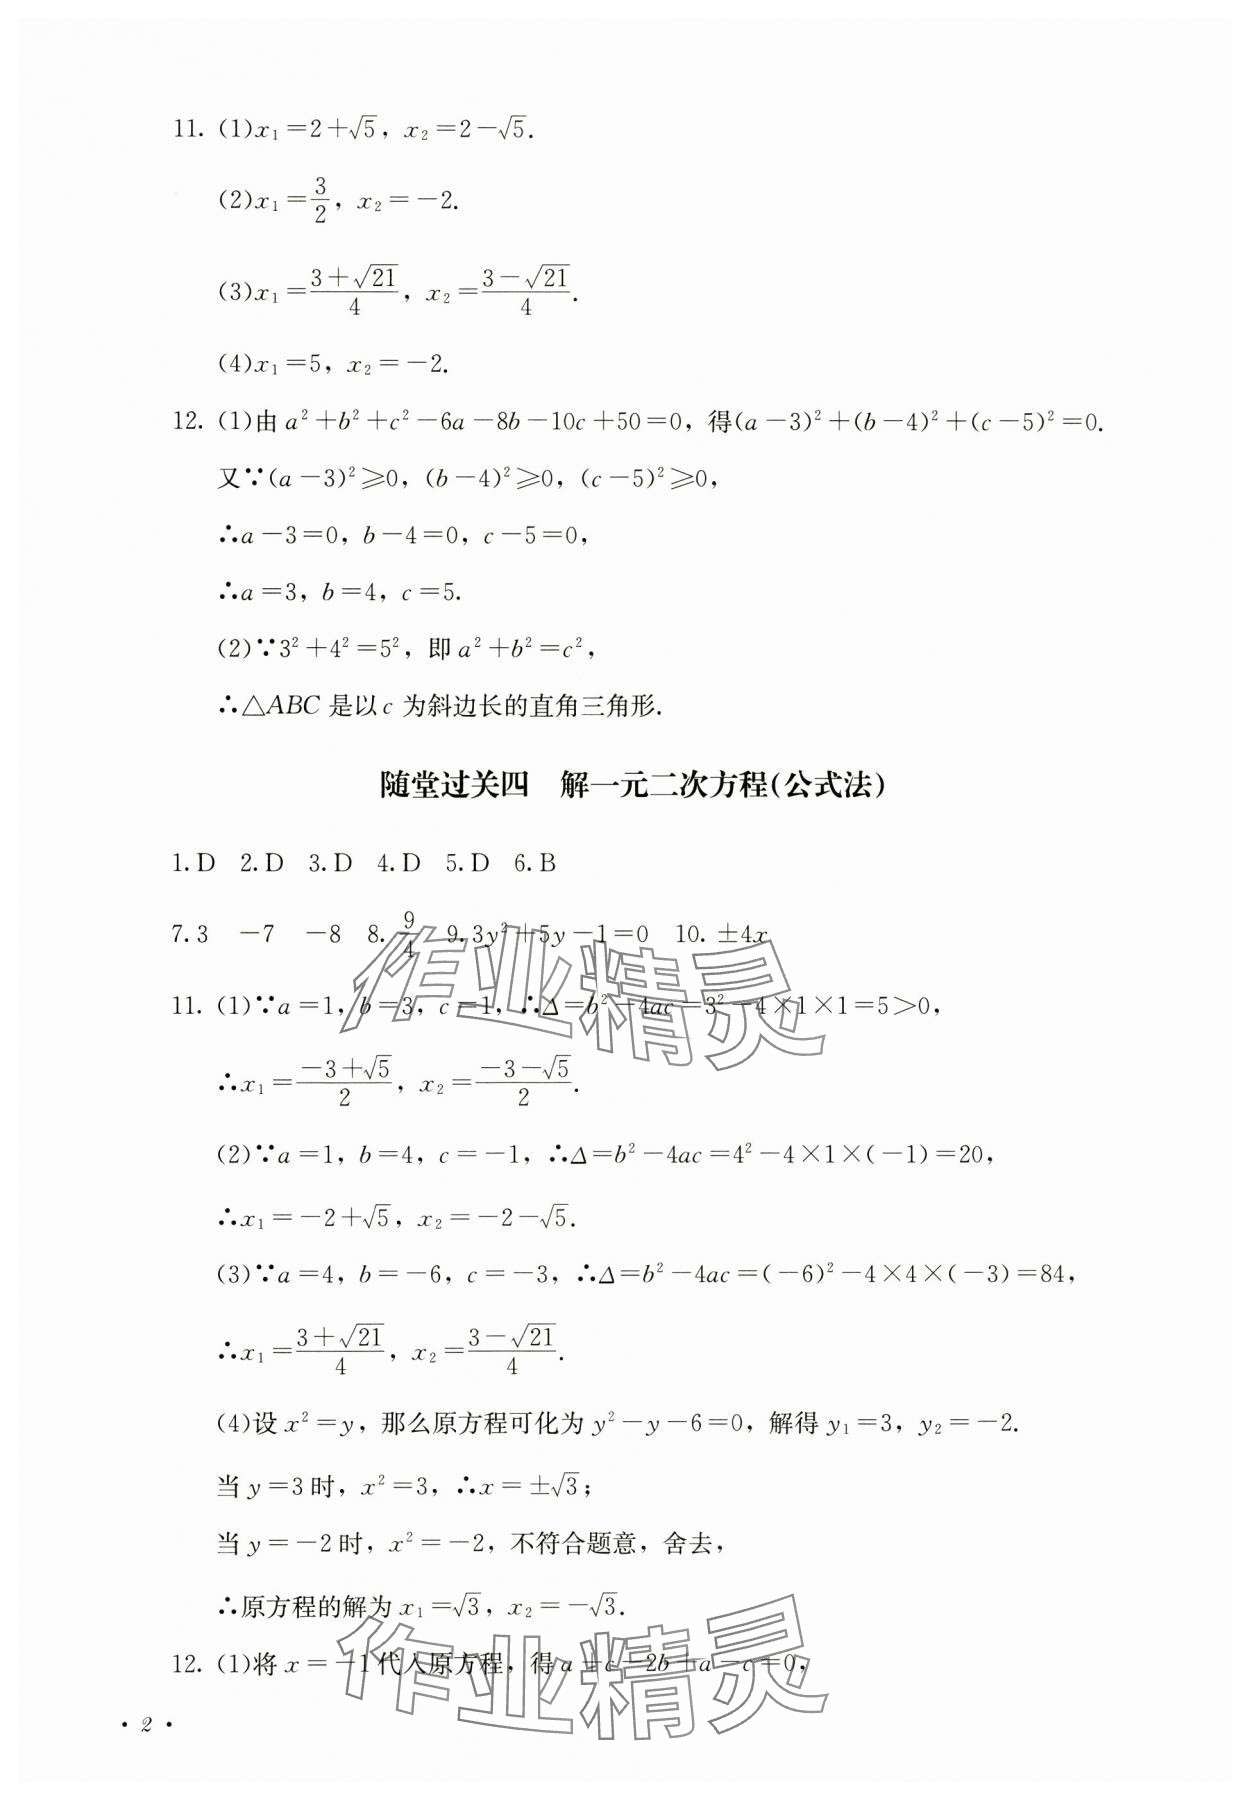 11. (1)x₁=2+√5, x₂=2-√5.
(2)x₁=3/2, x₂=-2.
(3)x₁=(3+√21)/4, x₂=(3-√21)/4.
(4)x₁=5, x₂=-2.
12. (1)由 a²+b²+c²-6a-8b-10c+50=0, 得(a-3)²+(b-4)²+(c-5)²=0.
又∵(a-3)²≥0, (b-4)²≥0, (c-5)²≥0,
∴a-3=0, b-4=0, c-5=0,
∴a=3, b=4, c=5.
(2)∵3²+4²=5², 即 a²+b²=c²,
∴△ABC 是以 c 为斜边长的直角三角形.
随堂过关四 解一元二次方程(公式法)
1. D 2. D 3. D 4. D 5. D 6. B
7. 3 -7 -8 8. 9/4 9. 3y²+5y-1=0 10. ±4x
11. (1)∵a=1, b=3, c=1, ∴Δ=b²-4ac=3²-4×1×1=5>0,
∴x₁=(-3+√5)/2, x₂=(-3-√5)/2.
(2)∵a=1, b=4, c=-1, ∴Δ=b²-4ac=4²-4×1×(-1)=20,
∴x₁=-2+√5, x₂=-2-√5.
(3)∵a=4, b=-6, c=-3, ∴Δ=b²-4ac=(-6)²-4×4×(-3)=84,
∴x₁=(3+√21)/4, x₂=(3-√21)/4.
(4)设 x²=y, 那么原方程可化为 y²-y-6=0, 解得 y₁=3, y₂=-2.
当 y=3 时, x²=3, ∴x=±√3;
当 y=-2 时, x²=-2, 不符合题意, 舍去,
∴原方程的解为 x₁=√3, x₂=-√3.
12. (1)将 x=-1 代入原方程, 得 a+c-2b+a-c=0,
· 2 ·
作业精灵
作业精灵